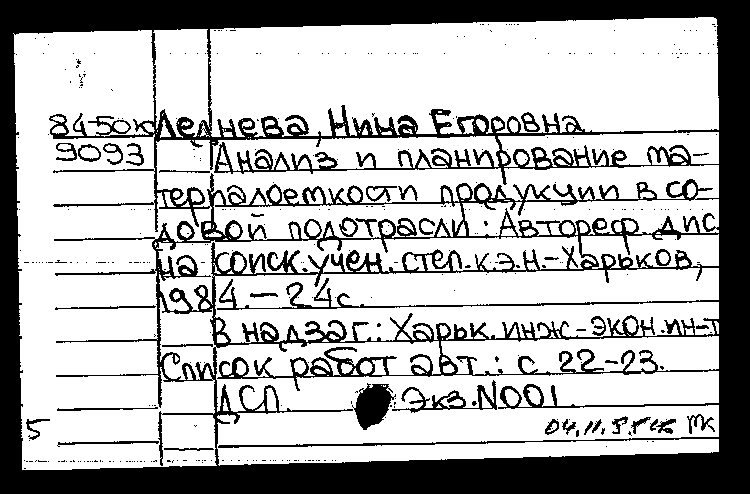 84-50к Леднева, Нина Егоровна
9093 Анализ и планирование ма-
териалоемкости продукции в со-
довой подотрасли : Автореф. дис.
на соиск. учен. степ. к.э.н. - Харьков,
1984. - 24 с.
В надзаг.: Харьк. инж-экон. ин-т
Список работ авт.: с. 22-23.
ДСП. Экз. N001.
5